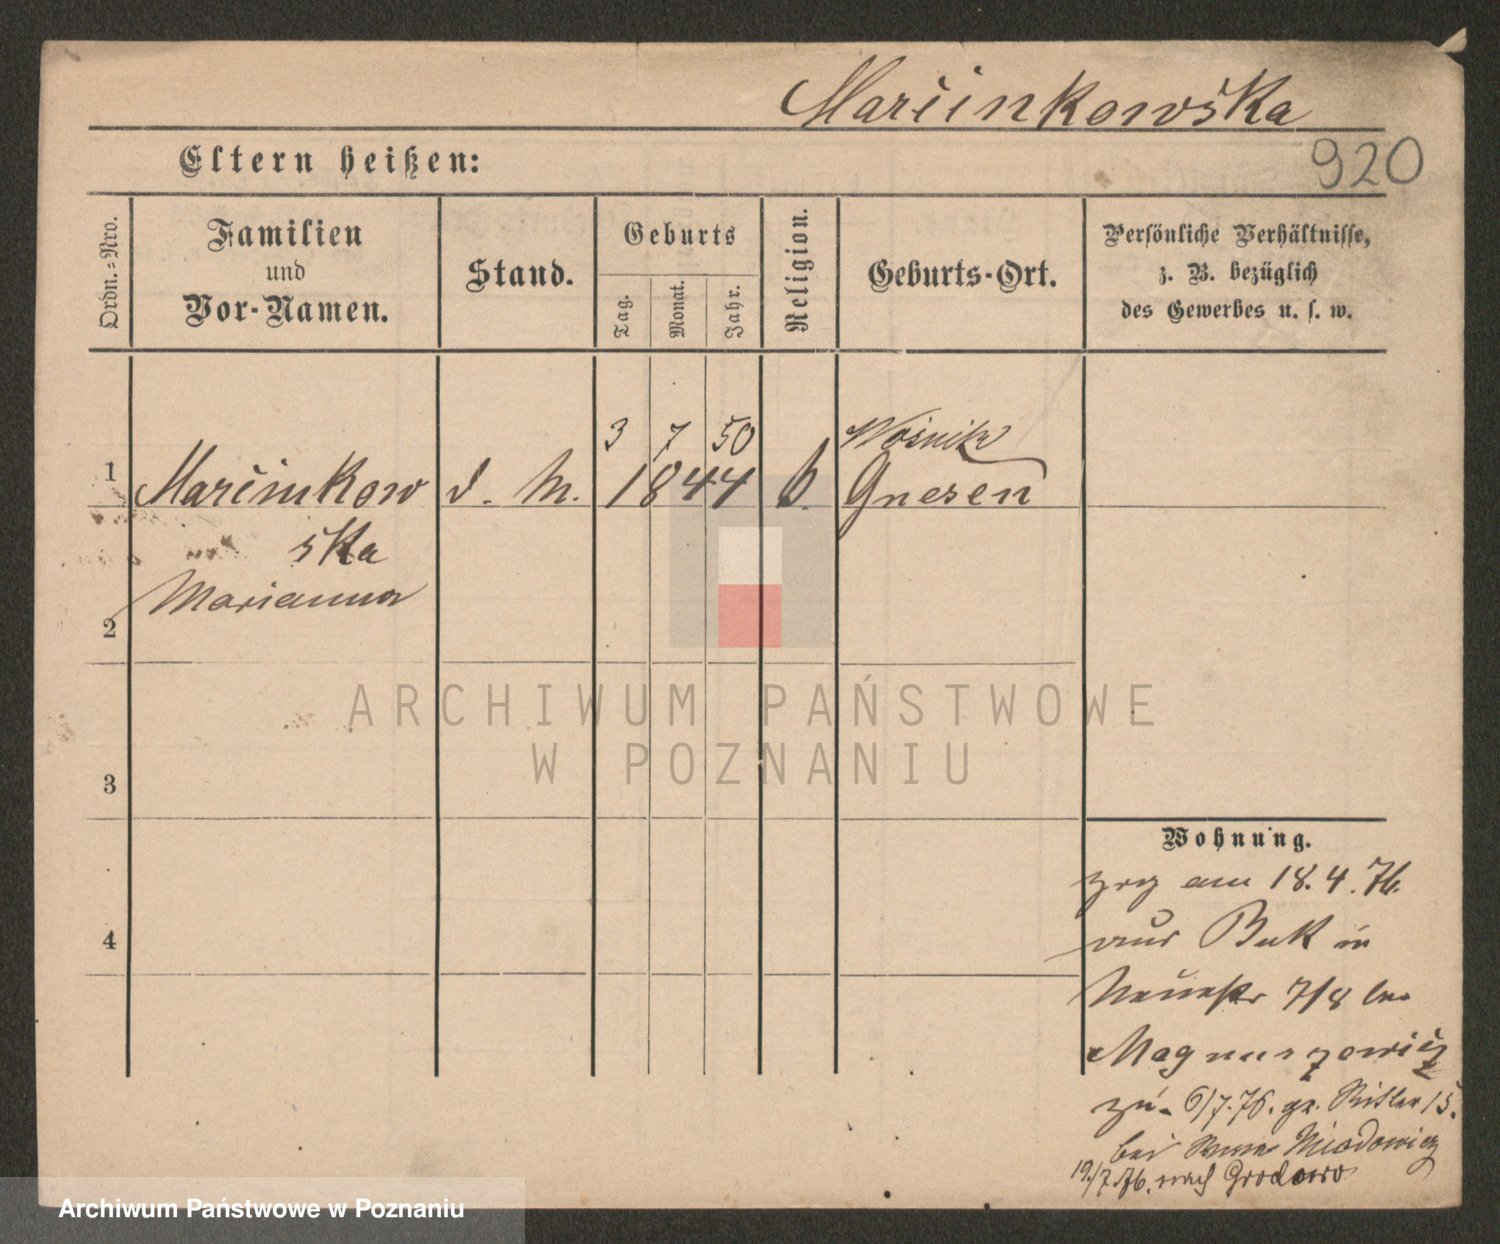 Marcinkowska
920
Eltern heißen:
Ordn.-Nro.
Familien
und
Vor-Namen.
Stand.
Geburts
Tag.
Monat.
Jahr.
Religion.
Geburts-Ort.
Persönliche Verhältnisse,
z. B. bezüglich
des Gewerbes u. s. w.
3 7 50 Wośnik
1 Marcinkow d. M. 1844 k. Gnesen
ska
Marianna
2
3
4
ARCHIWUM PAŃSTWOWE
W POZNANIU
Wohnung.
zog am 18.4.76.
aus Buk in
Neuestr 7/8 bei
Magnuszewicz
zu. 6/7.76. gr. Ritter 15.
bei Miodowicz
19./7.76. nach Grodowo
Archiwum Państwowe w Poznaniu